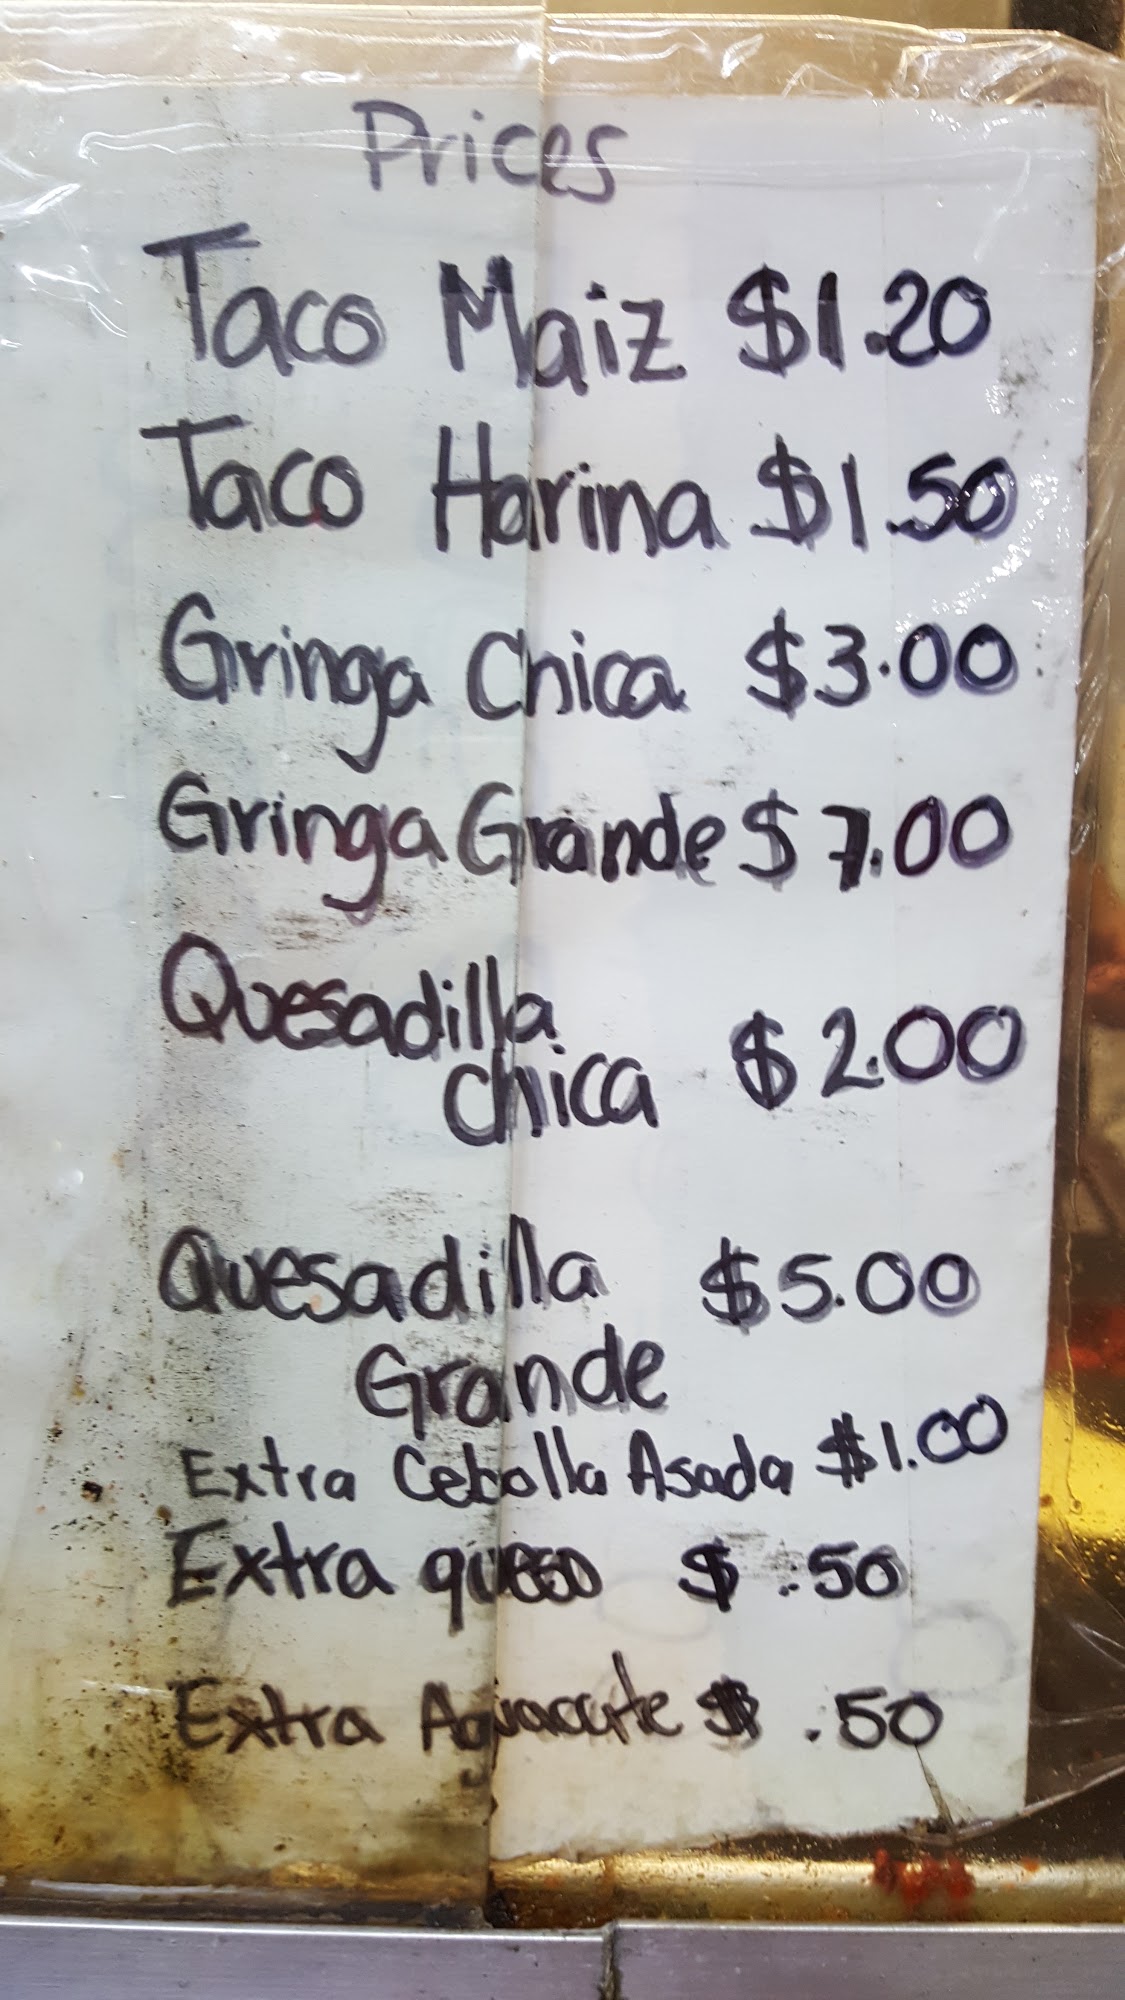 Prices
Taco Maiz $1.20
Taco Harina $1.50
Gringa Chica $3.00
Gringa Grande $7.00
Quesadilla
chica $2.00
Quesadilla $5.00
Grande
Extra Cebolla Asada $1.00
Extra queso $.50
Extra Aguacate $.50